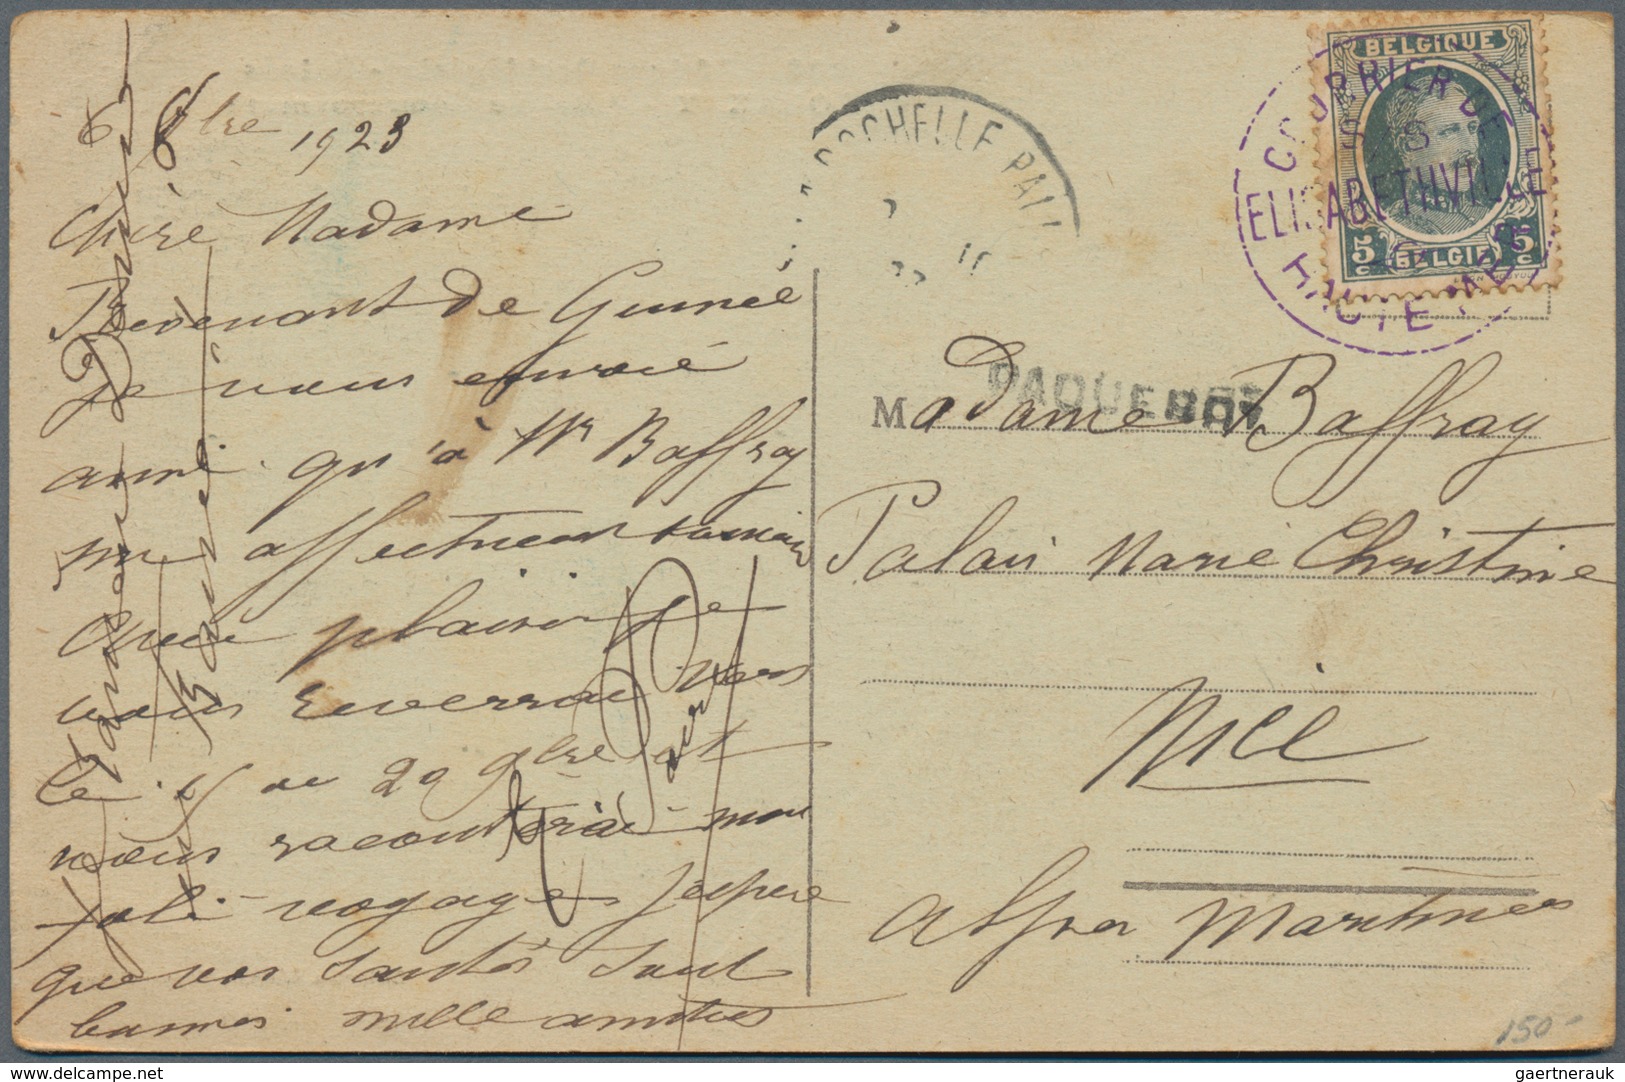 8bre 1923
Chère Madame
Revenant de Guinée
je vous envoie
ainsi qu'à Mr Baffray
me affectueux
Avec plaisir je
vous reverrai vers
le 15 ou 20 9bre et
vous raconterai mon
joli voyage J'espère
que vos santés sont
bonnes mille amitiés
LA ROCHELLE PALL
BELGIQUE
5c BELGIË 5c
COURRIER DE
S. S.
ELISABETHVILLE
HAUTE MER
PAQUEBOT
Madame Baffray
Palais Marie Christine
Nice
Alpes Maritimes
150-
gaertnerauk @ delcampe.com